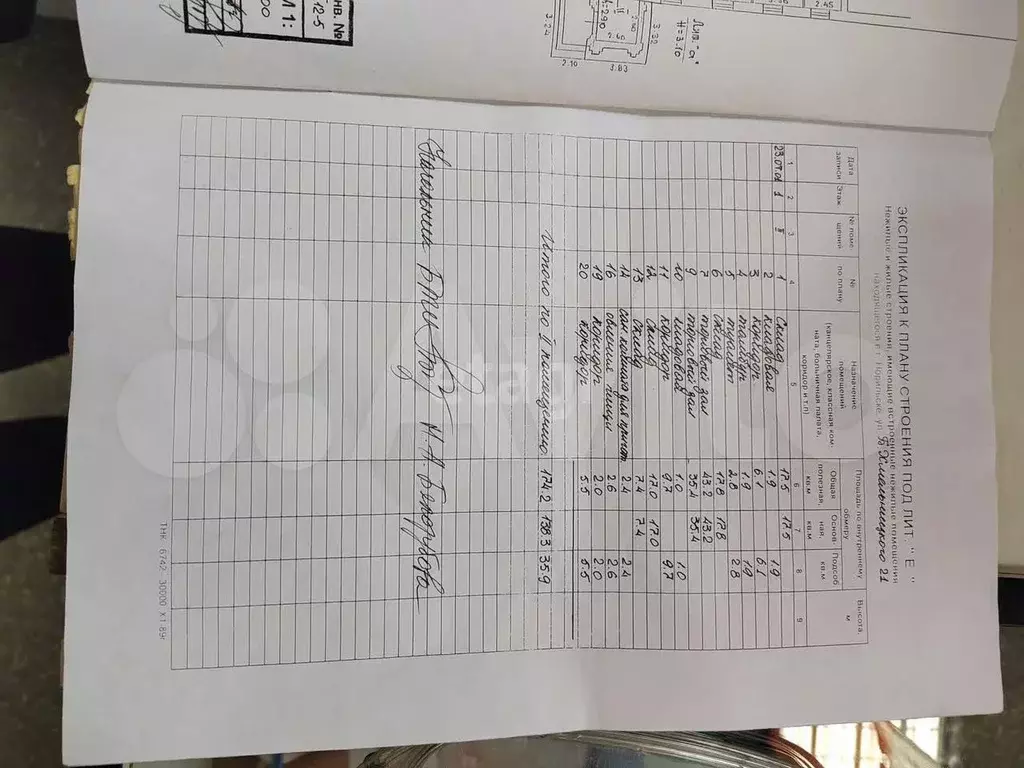 ЭКСПЛИКАЦИЯ К ПЛАНУ СТРОЕНИЯ ПОД ЛИТ. "Е"
Нежилые и жилые строения, имеющие встроенные нежилые помещения
находящегося в г. Норильске, ул. Б Хмельницкого 21
Дата записи Этаж № помещений № по плану Назначение помещений (канцелярское, классная комната, больничная палата, коридор и т.п.) Площадь по внутреннему обмеру Высота, м
Общая полезная, кв.м Основная, кв.м Подсоб кв.м
1 2 3 4 5 6 7 8 9
23.07.01 1 I 1 Склад 17.5 17.5
2 кладовая 1.9 1.9
3 коридор 6.1 6.1
4 тамбур 1.9 1.9
5 туалет 2.8 2.8
6 склад 17.8 17.8
7 торговый зал 43.2 43.2
9 торговый зал 35.4 35.4
10 кладовая 1.0 1.0
11 коридор 9.7 9.7
12 склад 17.0 17.0
13 склад 7.4 7.4
14 сан. кабина для 2.4 2.4
16 пищи 2.6 2.6
19 коридор 2.0 2.0
20 коридор 5.5 5.5
Итого по I помещению 174.2 138.3 35.9
Начальник М. А. Белозубова
ТНК 6742 30000 X 1.89г.
ИНВ. №
12-5
М 1:
00
Лит. "а"
H=3.10
3.24
2.10
3.83
3.32
2.60
2.90
2.45